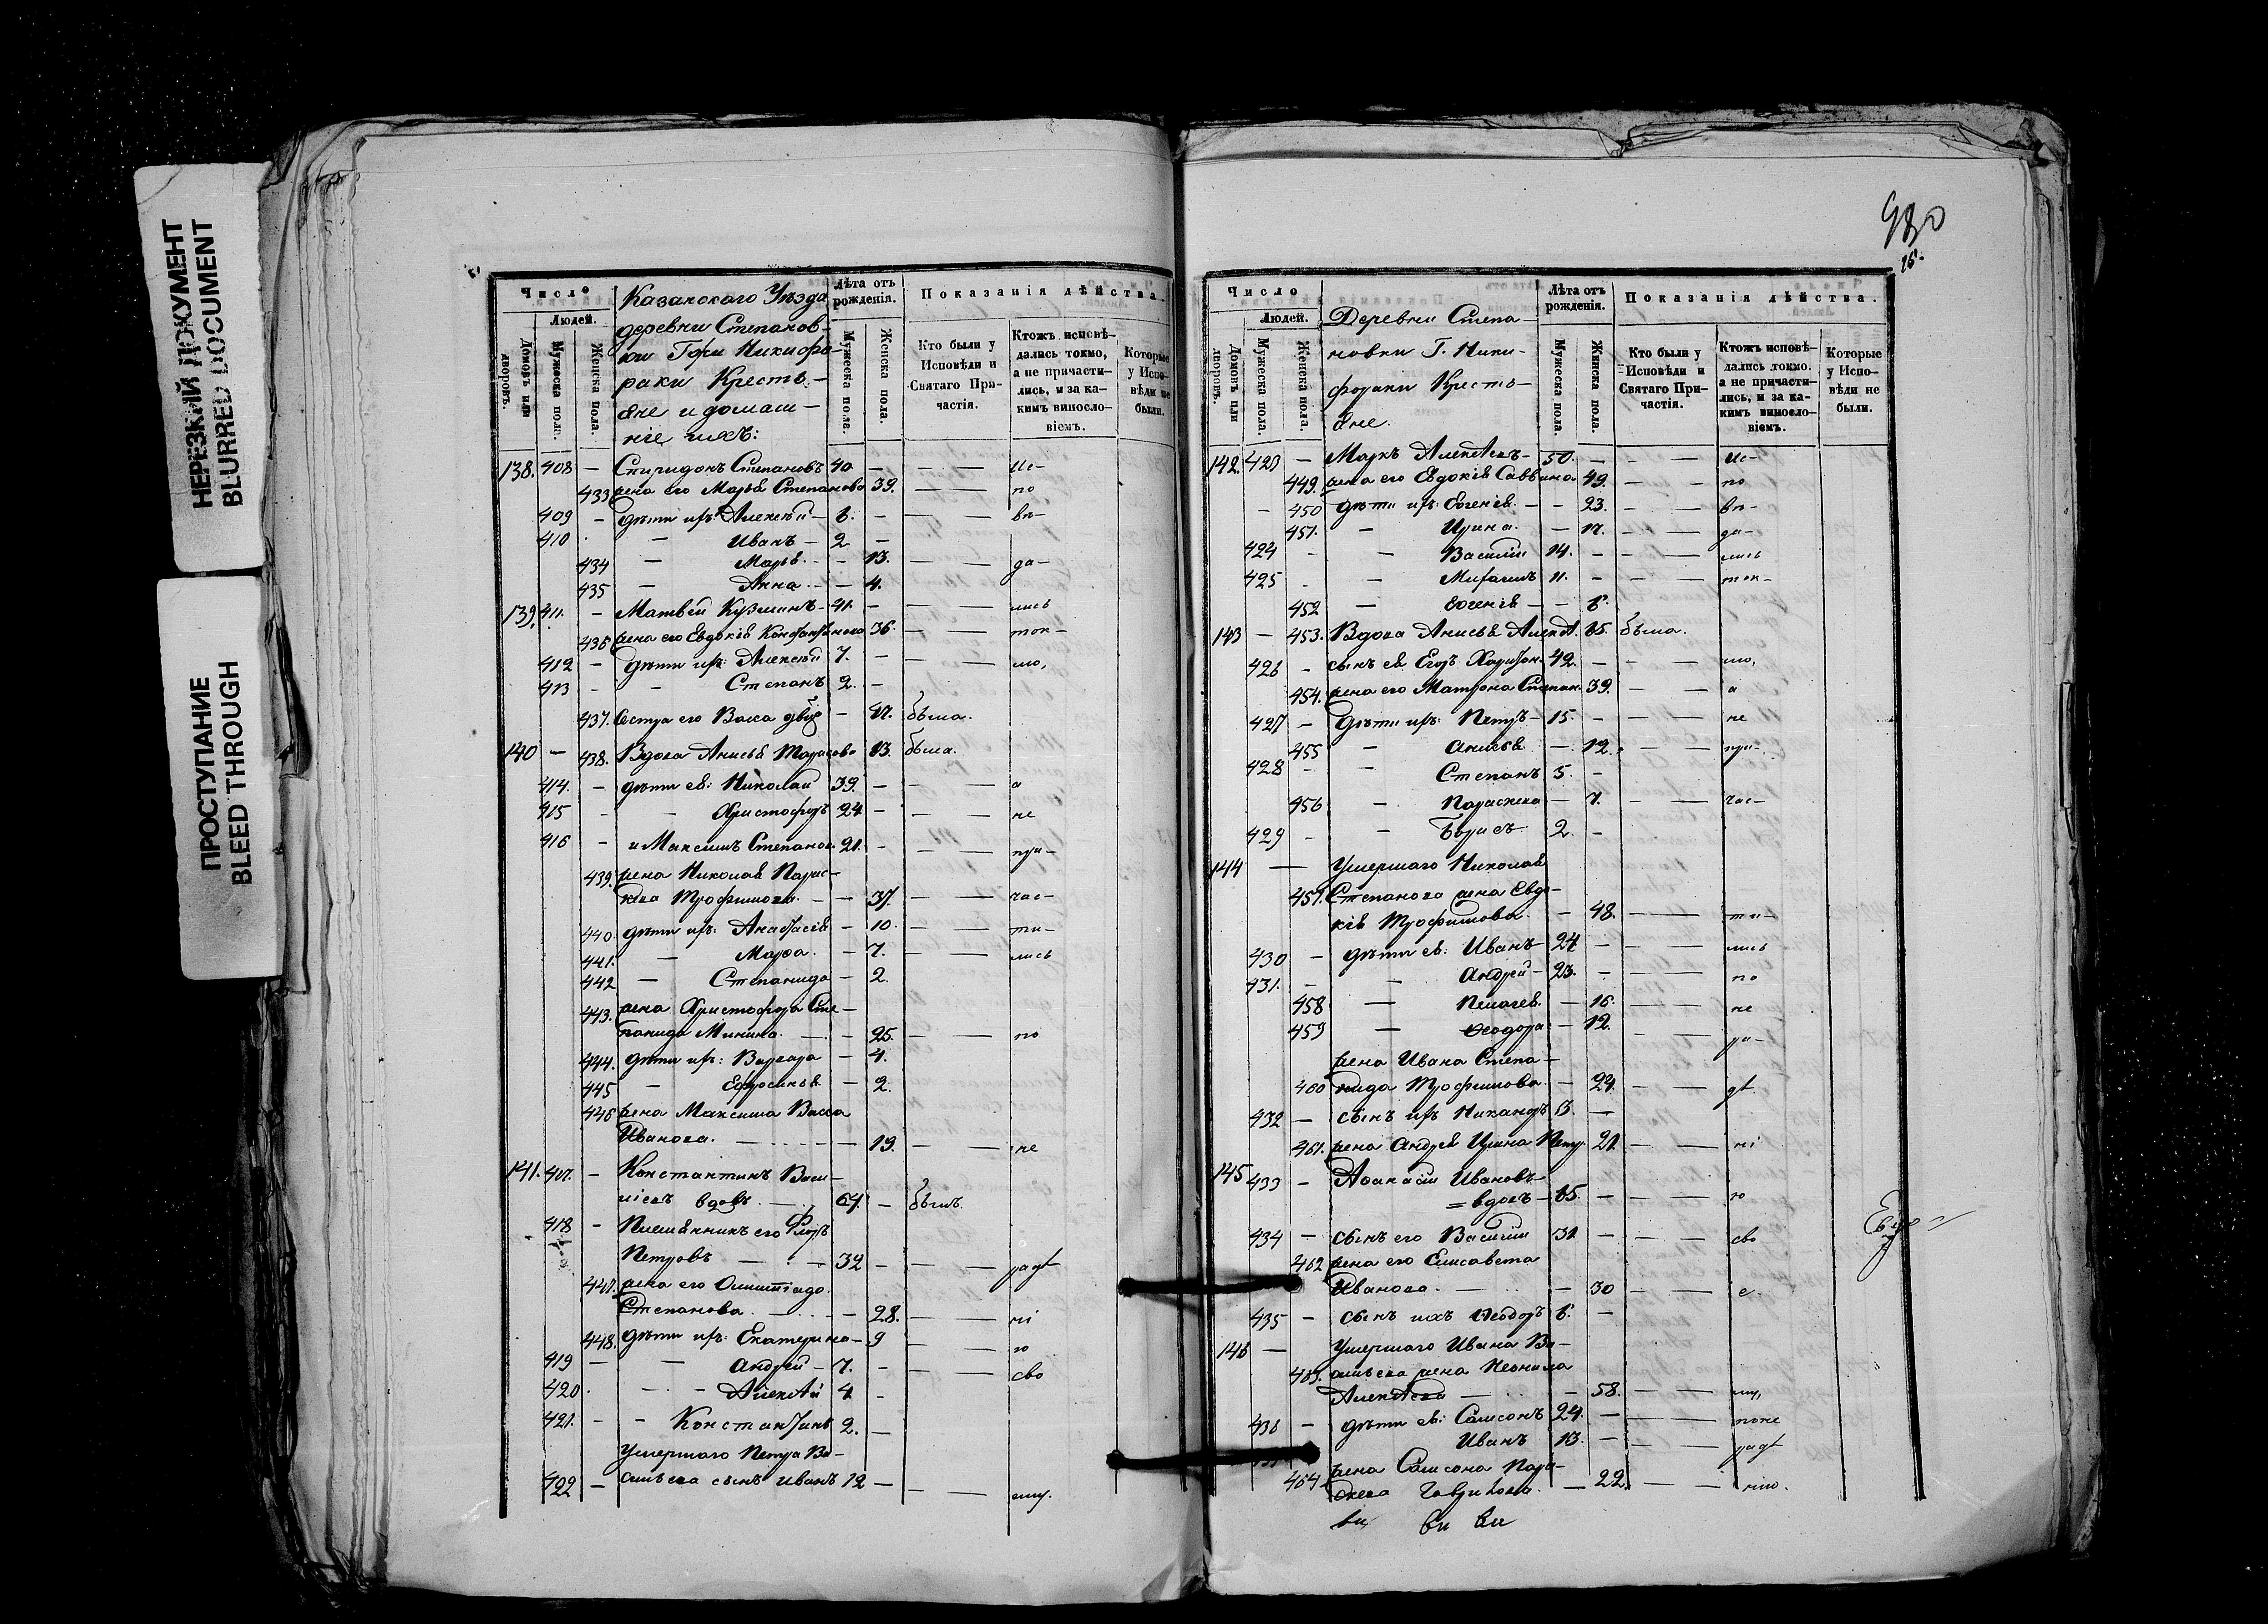 НЕРЕЗКИЙ ДОКУМЕНТ
BLURRED DOCUMENT
ПРОСТУПАНИЕ
BLEED THROUGH
Число
Людей.
Домовъ или дворовъ.
Мужеска пола.
Женска пола.
Казанскаго Уѣзда
деревни Степанов-
ки Г-жи Никифо-
раки Кресть-
яне и домаш-
ніе ихъ:
Лѣта отъ рожденія.
Мужеска пола.
Женска пола.
Показанія дѣйства.
Кто были у Исповѣди и Святаго Причастія.
Ктожъ исповѣдались токмо, а не причастились, и за какимъ винословіемъ.
Которые у Исповѣди не были.
138. 408 — Спиридонъ Степановъ 40 — — — Ис-
433 жена его Марья Степанова 39. — — по
409 — дѣти ихъ: Алексѣй — 6. — — — вѣ-
410 — Иванъ — 2 —
434 — Марья — 13. — — да-
435 — Анна — 4.
139. 411. — Матвей Кузминъ — 41. — — — лись
436 жена его Евдокія Константинова 36. — — ток-
412 — дѣти ихъ: Алексѣй 7. — — — мо,
413 — — Степанъ 2. —
437. Сестра его Васса — 47. была.
140 — 438. Вдова Анисья Тарасова 73. была.
414. — дѣти ея: Николай 39. — — — а
415 — — Христофоръ 24 — — — не
416 — и Максимъ Степанов. 21. — — — при-
439. жена Николая Парас-
кева Трофимова. — — 37. — — час-
440. дѣти ихъ: Анастасія — 10. — — ти-
441. — Марѳа. — 7. — — лись
442 — Степанида — 2.
443. жена Христофора Сте-
панида Минина. — 25. — — по
444. дѣти ихъ: Варвара — 4.
445 — Ефросинья — 2.
446 жена Максима Васса
Иванова. — — 19. — — не
141. 417. — Константинъ Васи-
ліевъ вдовъ. — 67. — былъ.
418 — Племянникъ его Флоръ
Петровъ — 32 — — — радѣ
447. жена его Олимпіада
Степанова. — — 28. — — ні
448. дѣти ихъ: Екатерина — 9 — — ю
419 — — Андрей — 7. — — — сво
420. — Алексѣй 4 —
421. — — Константинъ 2. —
Умершаго Петра Ва-
422 — сильева сынъ Иванъ 12 — — — ему.
980
Число
Людей.
Домовъ или дворовъ.
Мужеска пола.
Женска пола.
Деревни Степа-
новки Г. Ники-
фораки Кресть-
яне.
Лѣта отъ рожденія.
Мужеска пола.
Женска пола.
Показанія дѣйства.
Кто были у Исповѣди и Святаго Причастія.
Ктожъ исповѣдались токмо, а не причастились, и за какимъ винословіемъ.
Которые у Исповѣди не были.
142. 423 — Маркъ Алексѣевъ — 50. — — — Ис-
449. жена его Евдокія Саввина 49. — — по
— 450 дѣти ихъ: Евгенія — — 23. — — вѣ-
451. — Ирина. — 17. — — да-
424 — — Василій 14. — — — лись
425 — — Митрофанъ 11. — — — ток-
452 — Евгенія — — 6.
143 — 453. Вдова Анисья Алексѣ. 65. была.
426 — сынъ ея Егоръ Харитон. 42. — — — мо,
454. жена его Матрона Степан. 39. — — а
427 — Дѣти ихъ: Петръ — 15. — — — не
455 — Анисья — 12. — — при-
428 — — Степанъ 5. —
456 — Параскева — 7. — — час-
429 — — Борисъ 2. —
144 — Умершаго Николая
457. Степанова жена Евдо-
кія Трофимова. — 48. — — ти-
430 — дѣти ея: Иванъ — 24 — — — лись
431. — — Андрей — 23. — — — по
458 — Пелагея — 16. — — не
459 — Ѳеодора — 12. — — ра-
жена Ивана Степа-
460 нида Трофимова — 24. — — дѣ
432 — сынъ ихъ Никаноръ 3. —
461. жена Андрея Ирина Петр. 21. — — ні
145 433 — Аѳанасій Ивановъ —
= вдовъ — 65. — — — ю
434 — сынъ его Василій 31. — — — сво
462 жена его Елисавета
Иванова. — — 30 — — е-
435 — сынъ ихъ Ѳеодоръ 6. —
146 — Умершаго Ивана Ва-
463. сильева жена Неонила
Алексѣева — — 58. — — му,
436 — дѣти ея: Самсонъ 24. — — — поне
Иванъ 13. — — — радѣ
464 жена Самсона Пара-
скева Гаврилова. — 22. — — нію.